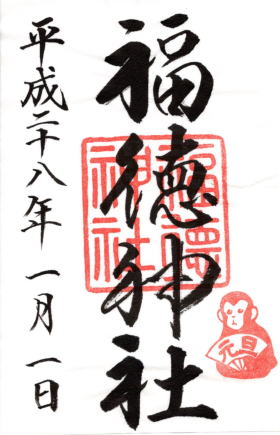 福徳神社
福徳神社
元旦
平成二十八年 一月 一日